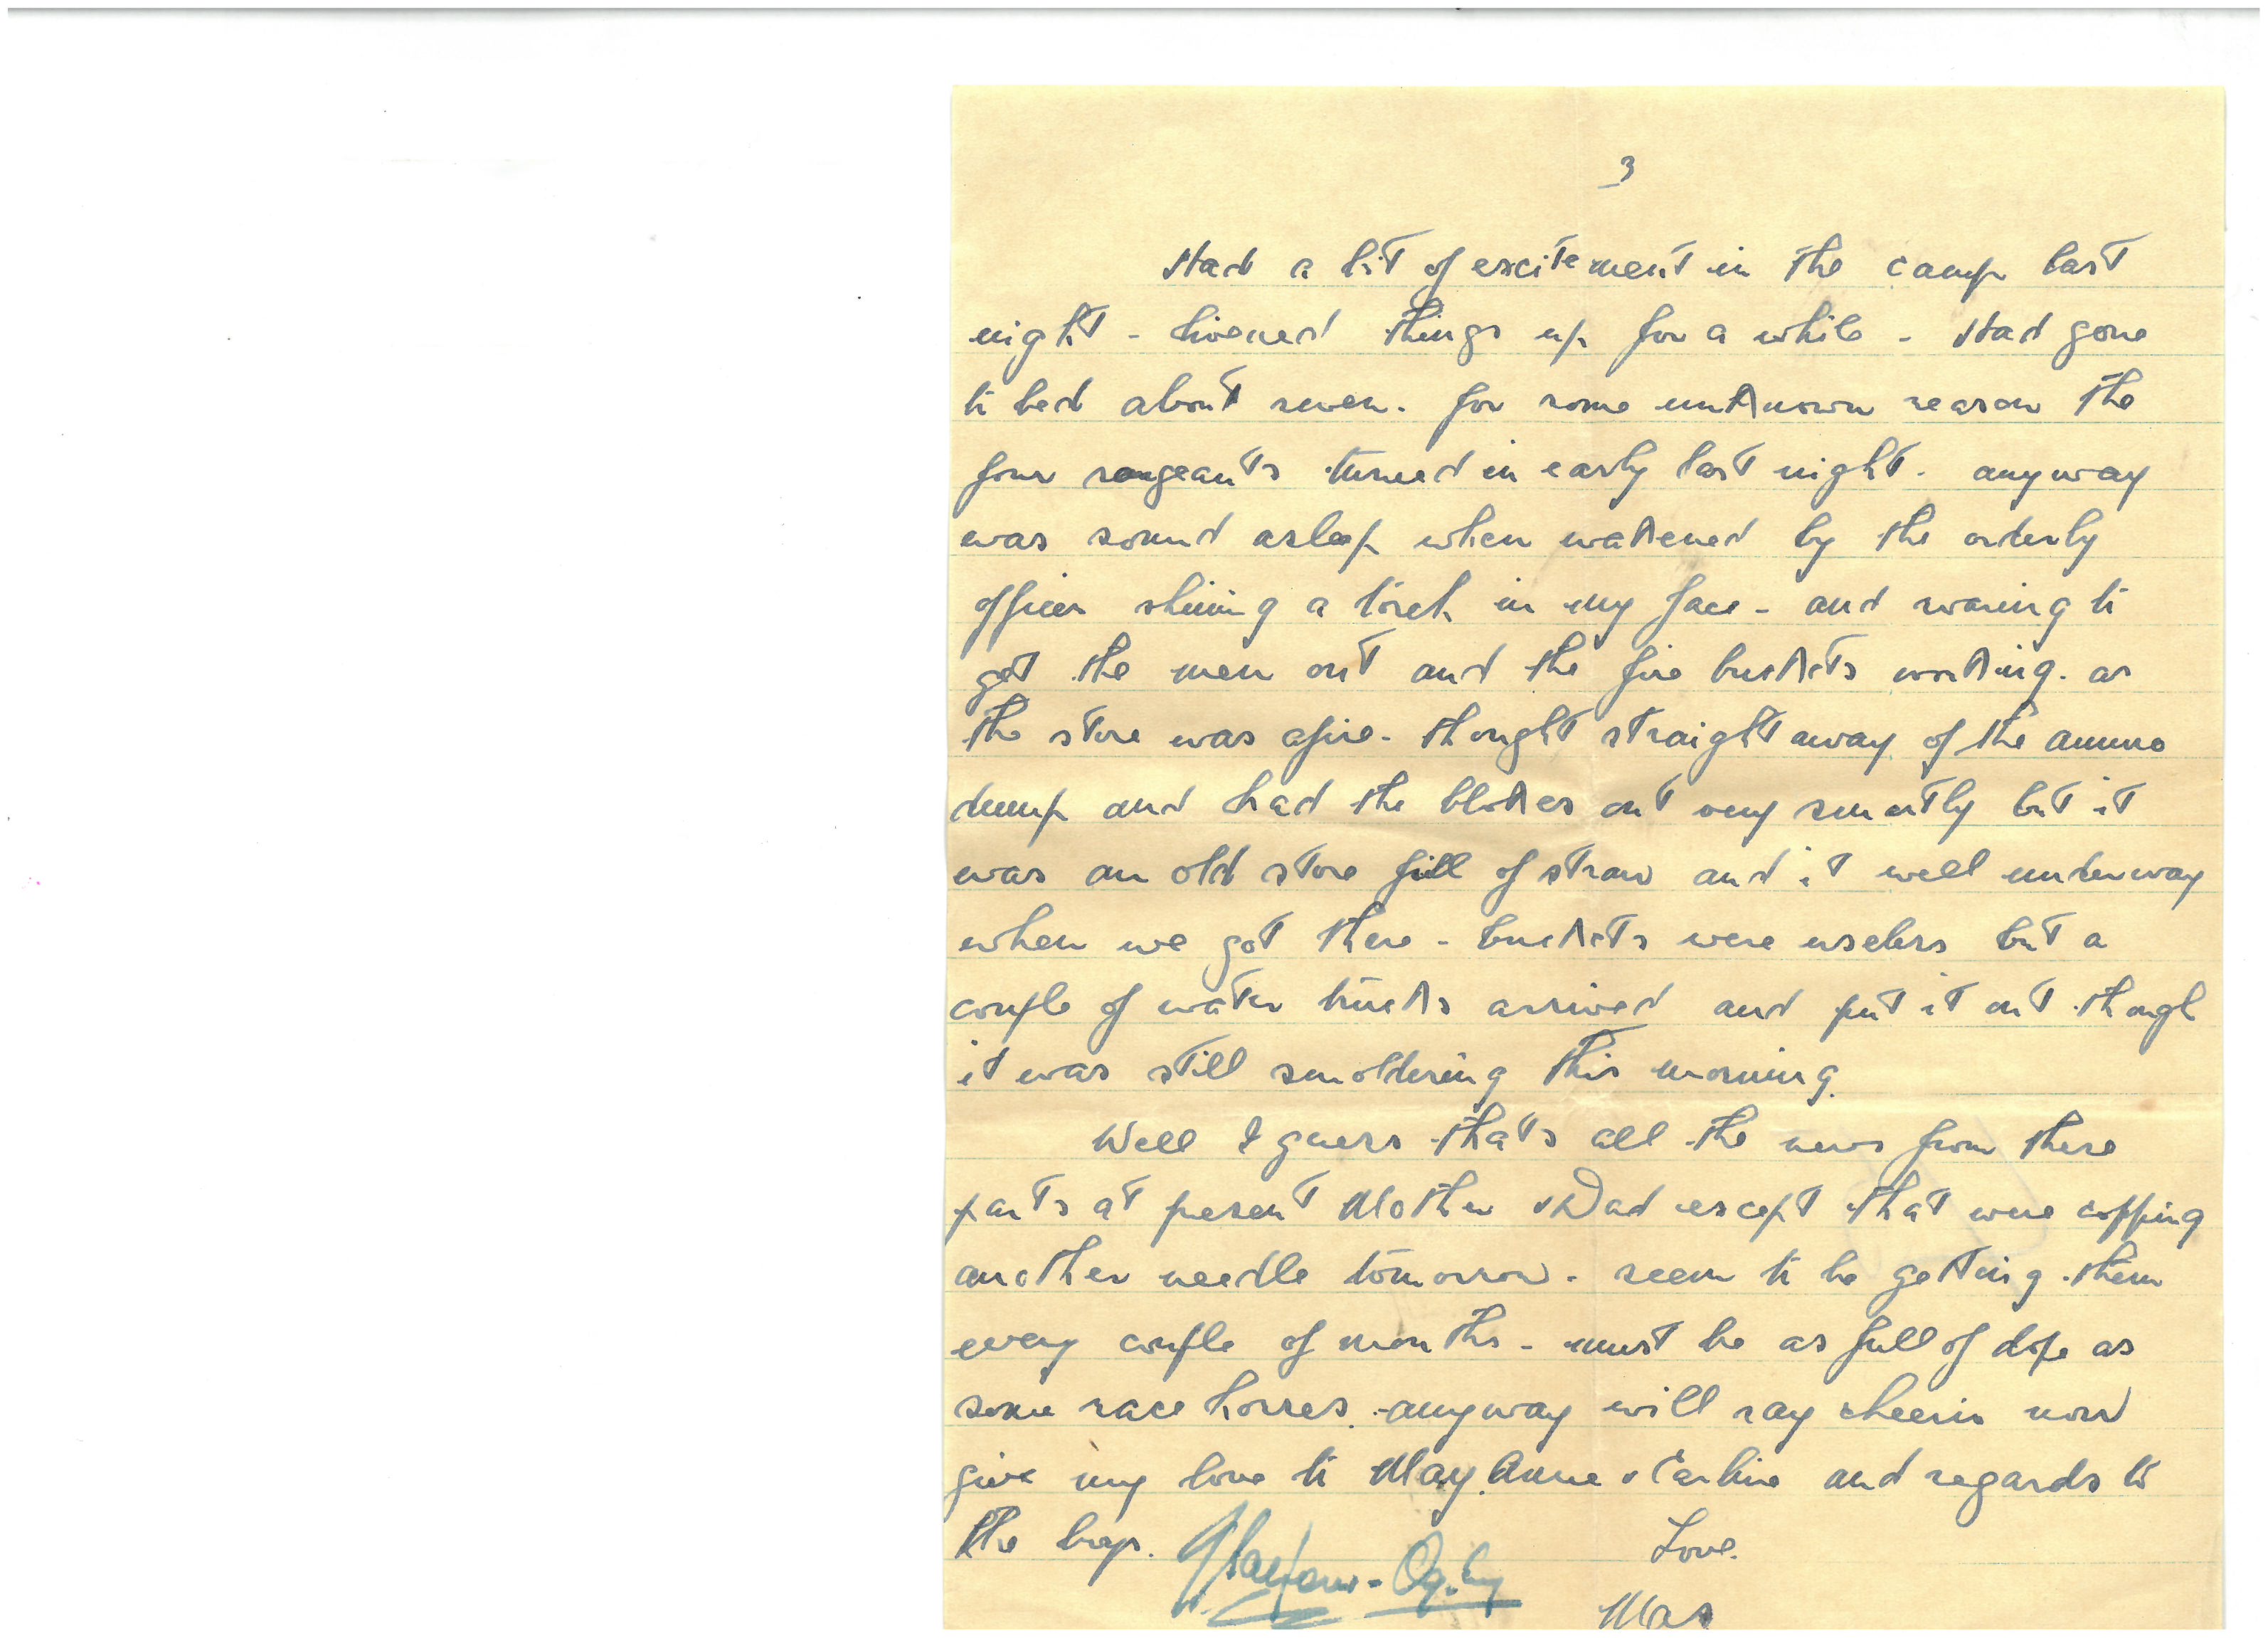 3
Had a bit of excitement in the camp last
night - livened things up for a while - Had gone
to bed about seven. for some unknown reason the
four sergeants turned in early last night. anyway
was sound asleep when wakened by the orderly
officer shining a torch in my face - and roaring to
get the men out and the fire buckets working. as
the store was afire - thought straight away of the ammo
dump and had the blokes out very smartly but it
was an old store full of straw and it well underway
when we got there - buckets were useless but a
couple of water trucks arrived and put it out though
it was still smoldering this morning.
Well I guess thats all the news from these
parts at present Mother & Dad except that were copping
another needle tomorrow - seem to be getting them
every couple of months - must be as full of dope as
some race horses. anyway will say cheerio now
give my love to May. Anne & and regards to
the boys. Love.